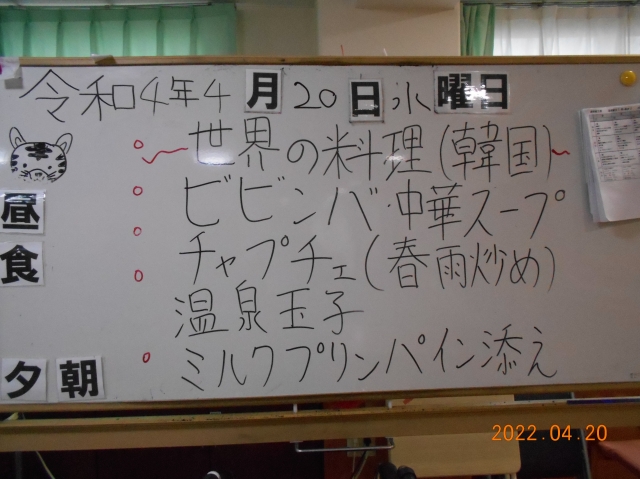 令和4年4月20日水曜日
世界の料理(韓国)
ビビンバ・中華スープ
昼
チャプチェ(春雨炒め)
食
温泉玉子
ミルクプリンパイン添え
夕朝
2022.04.20